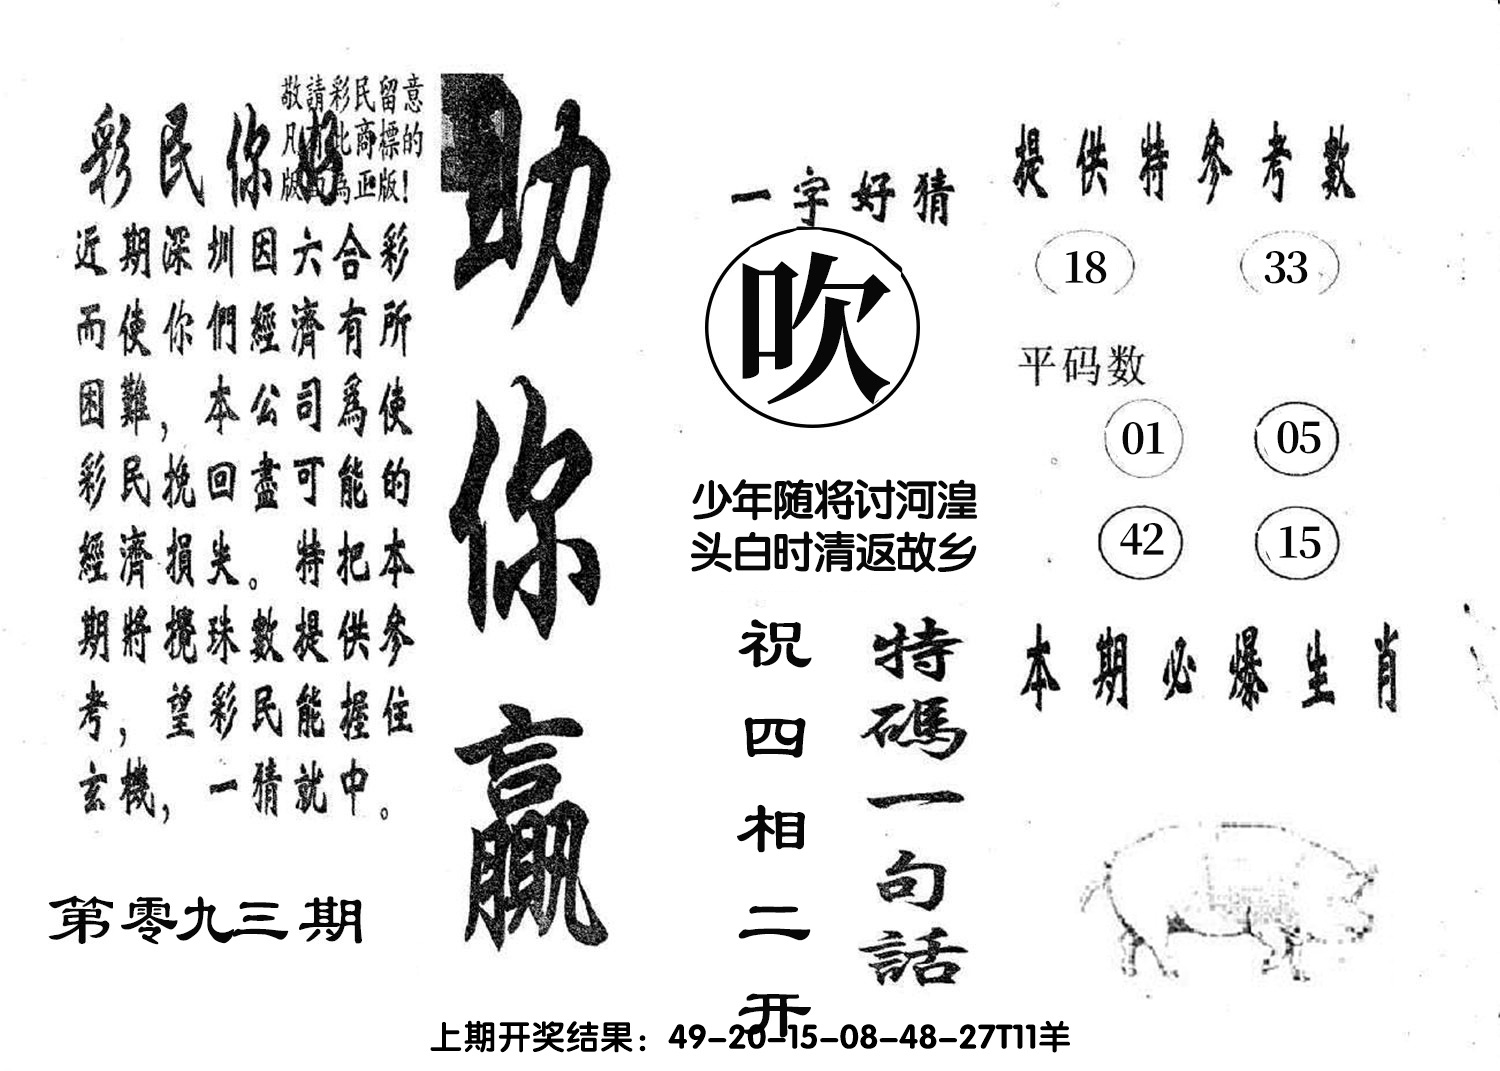 敬請彩民留意
凡有此商標的
版面為正版!
彩民你好
近期深圳因六合彩
而使你們經濟有所
困難，本公司爲使
彩民挽回盡可能的
經濟損失。特把本
期將攪珠數提供參
考，望彩民能握住
玄機，一猜就中。
第零九三期
助你贏
一字好猜
吹
少年随将讨河湟
头白时清返故乡
特碼一句話
祝四相二开
提供特參考數
18 33
平码数
01 05
42 15
本期必爆生肖
上期开奖结果：49-20-15-08-48-27T11羊